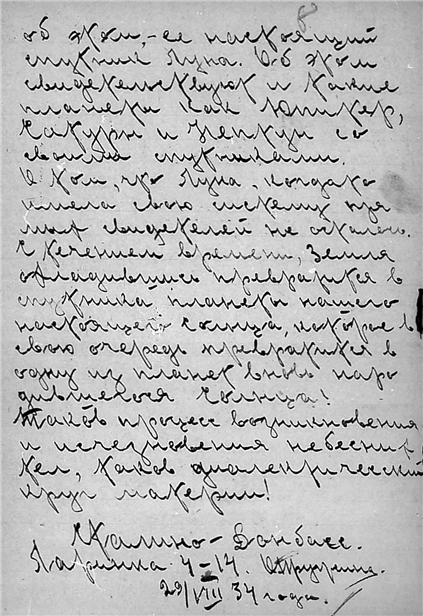 8
об этом, - ее настоящий
спутник Луна. Об этом
свидетельствуют и такие
планеты как Юпитер,
Сатурн и Нептун со
своими спутниками.
О том, что Луна, когда то
имела свою систему пря
мых свидетелей не осталось.
С течением времени, Земля
охладившись превратится в
спутника планеты нашего
настоящего Солнца, которое в
свою очередь превратится в
одну из планет вновь наро
дившегося Солнца!
Таков процесс возникновения
и исчезновения небесных
тел, таков диалектический
круг материи!
Сталино - Донбасс.
Ларинка 4-14.
29/VIII 34 года.